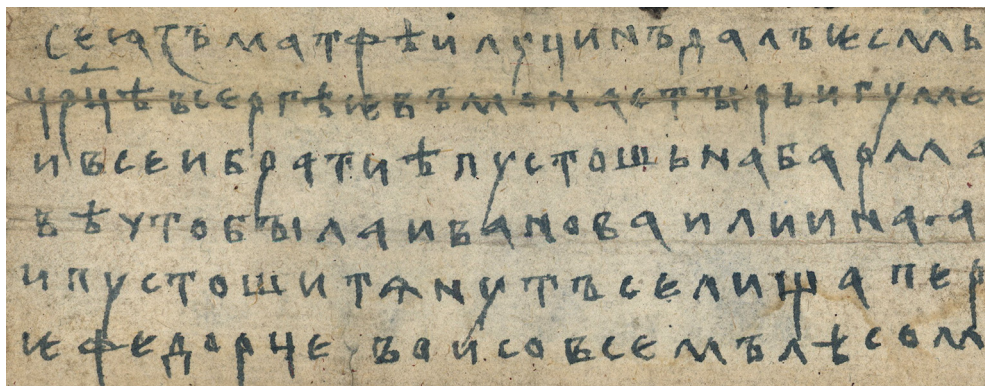 се ꙗзъ матфѣи лучинъ далъ ѥсмь
чрцѣ въ сергѣѥвъ монастырь игуме
и всеи братиѣ пустошь на баралла
въѣ уто была иванова ильина а
и пустоши тѧнутъ селища пер
ѥ федорце вои со всемъ лѣсом